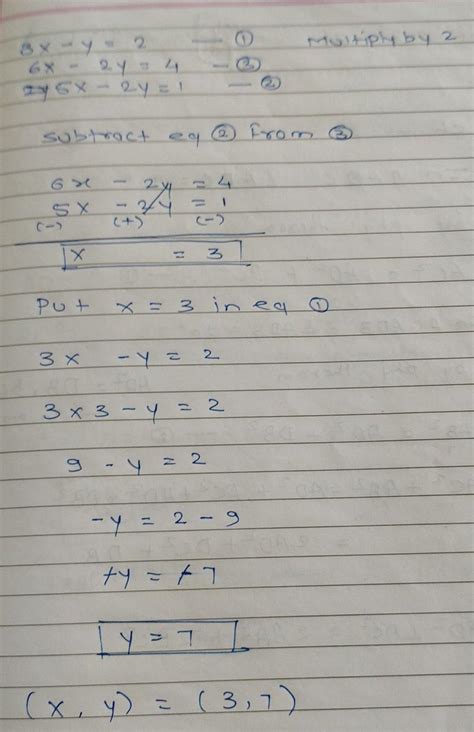 3x - y = 2 — ① Multiply by 2
6x - 2y = 4 — ③
5x - 2y = 1 — ②
subtract eq ② from ③
6x - 2y = 4
5x - 2y = 1
(-) (+) (-)
x = 3
Put x = 3 in eq ①
3x - y = 2
3 x 3 - y = 2
9 - y = 2
-y = 2 - 9
+y = +7
y = 7
(x, y) = (3, 7)